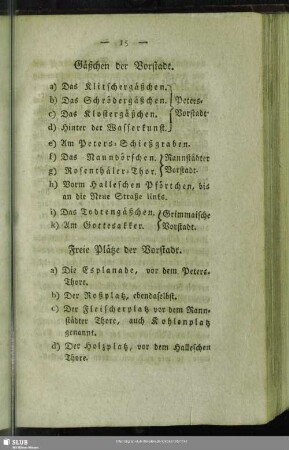 — 15 —
Gäßchen der Vorstadt.
a) Das Klitschergäßchen.
b) Das Schrödergäßchen.
c) Das Klostergäßchen.
d) Hinter der Wasserkunst.
Peters-
Vorstadt
e) Am Peters-Schießgraben.
f) Das Naundörfchen.
g) Rosenthäler-Thor.
Rannstädter
Vorstadt.
h) Vorm Halleschen Pförtchen, bis
an die Neue Straße links.
i) Das Todtengäßchen.
k) Am Gottesakker.
Grimmaische
Vorstadt.
Freie Plätze der Vorstadt.
a) Die Esplanade, vor dem Peters-
Thore.
b) Der Roßplatz, ebendaselbst.
c) Der Fleischerplatz vor dem Rann-
städter Thore, auch Kohlenplatz
genannt.
d) Der Holzplatz, vor dem Halleschen
Thore.
SLUB